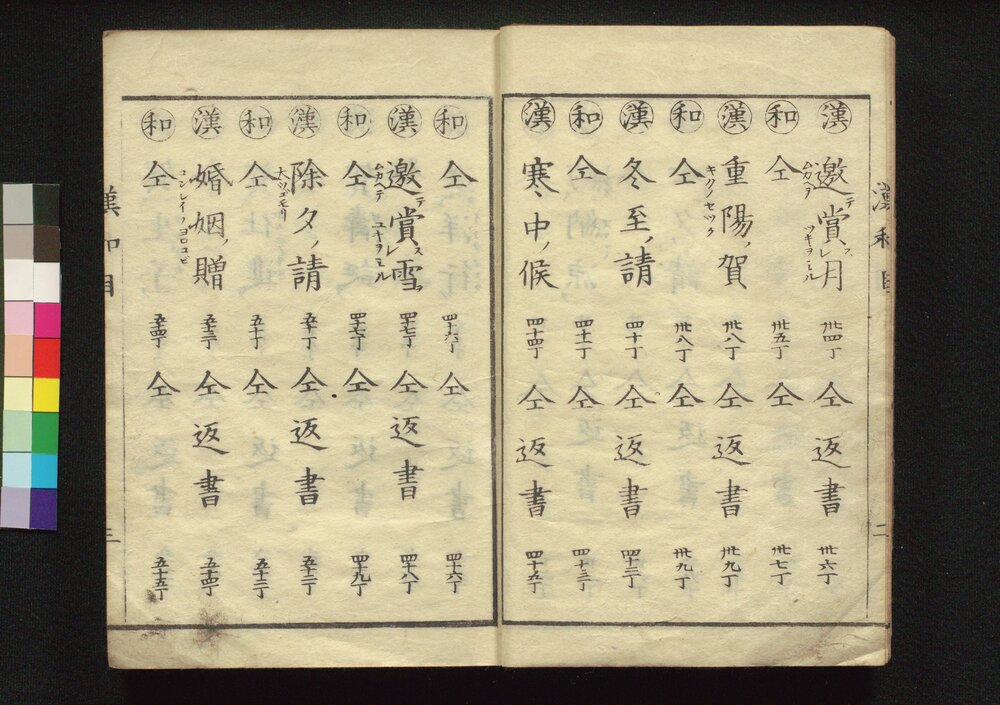 漢 邀テ賞スレ月 卅四丁 仝 返書 卅六丁
ムカヘテ ツキヲミル
和 仝 卅五丁 仝 卅七丁
漢 重陽ノ賀 卅八丁 仝 返書 卅九丁
キクノセツク
和 仝 卅八丁 仝 卅九丁
漢 冬至ノ請 四十丁 仝 返書 四十二丁
和 仝 四十一丁 仝 四十三丁
漢 寒中ノ候 四十四丁 仝 返書 四十五丁
漢和目 二
和 仝 四十六丁 仝 四十六丁
漢 邀テ賞スレ雪 四十七丁 仝 返書 四十八丁
ムカヘテ ユキヲミル
和 仝 四十七丁 仝 四十九丁
漢 除夕ノ請 五十丁 仝 返書 五十二丁
大ツゴモリ
和 仝 五十丁 仝 五十三丁
漢 婚姻ノ贈 五十三丁 仝 返書 五十四丁
コンレイノヨロコビ
和 仝 五十四丁 仝 五十五丁
漢和目 三